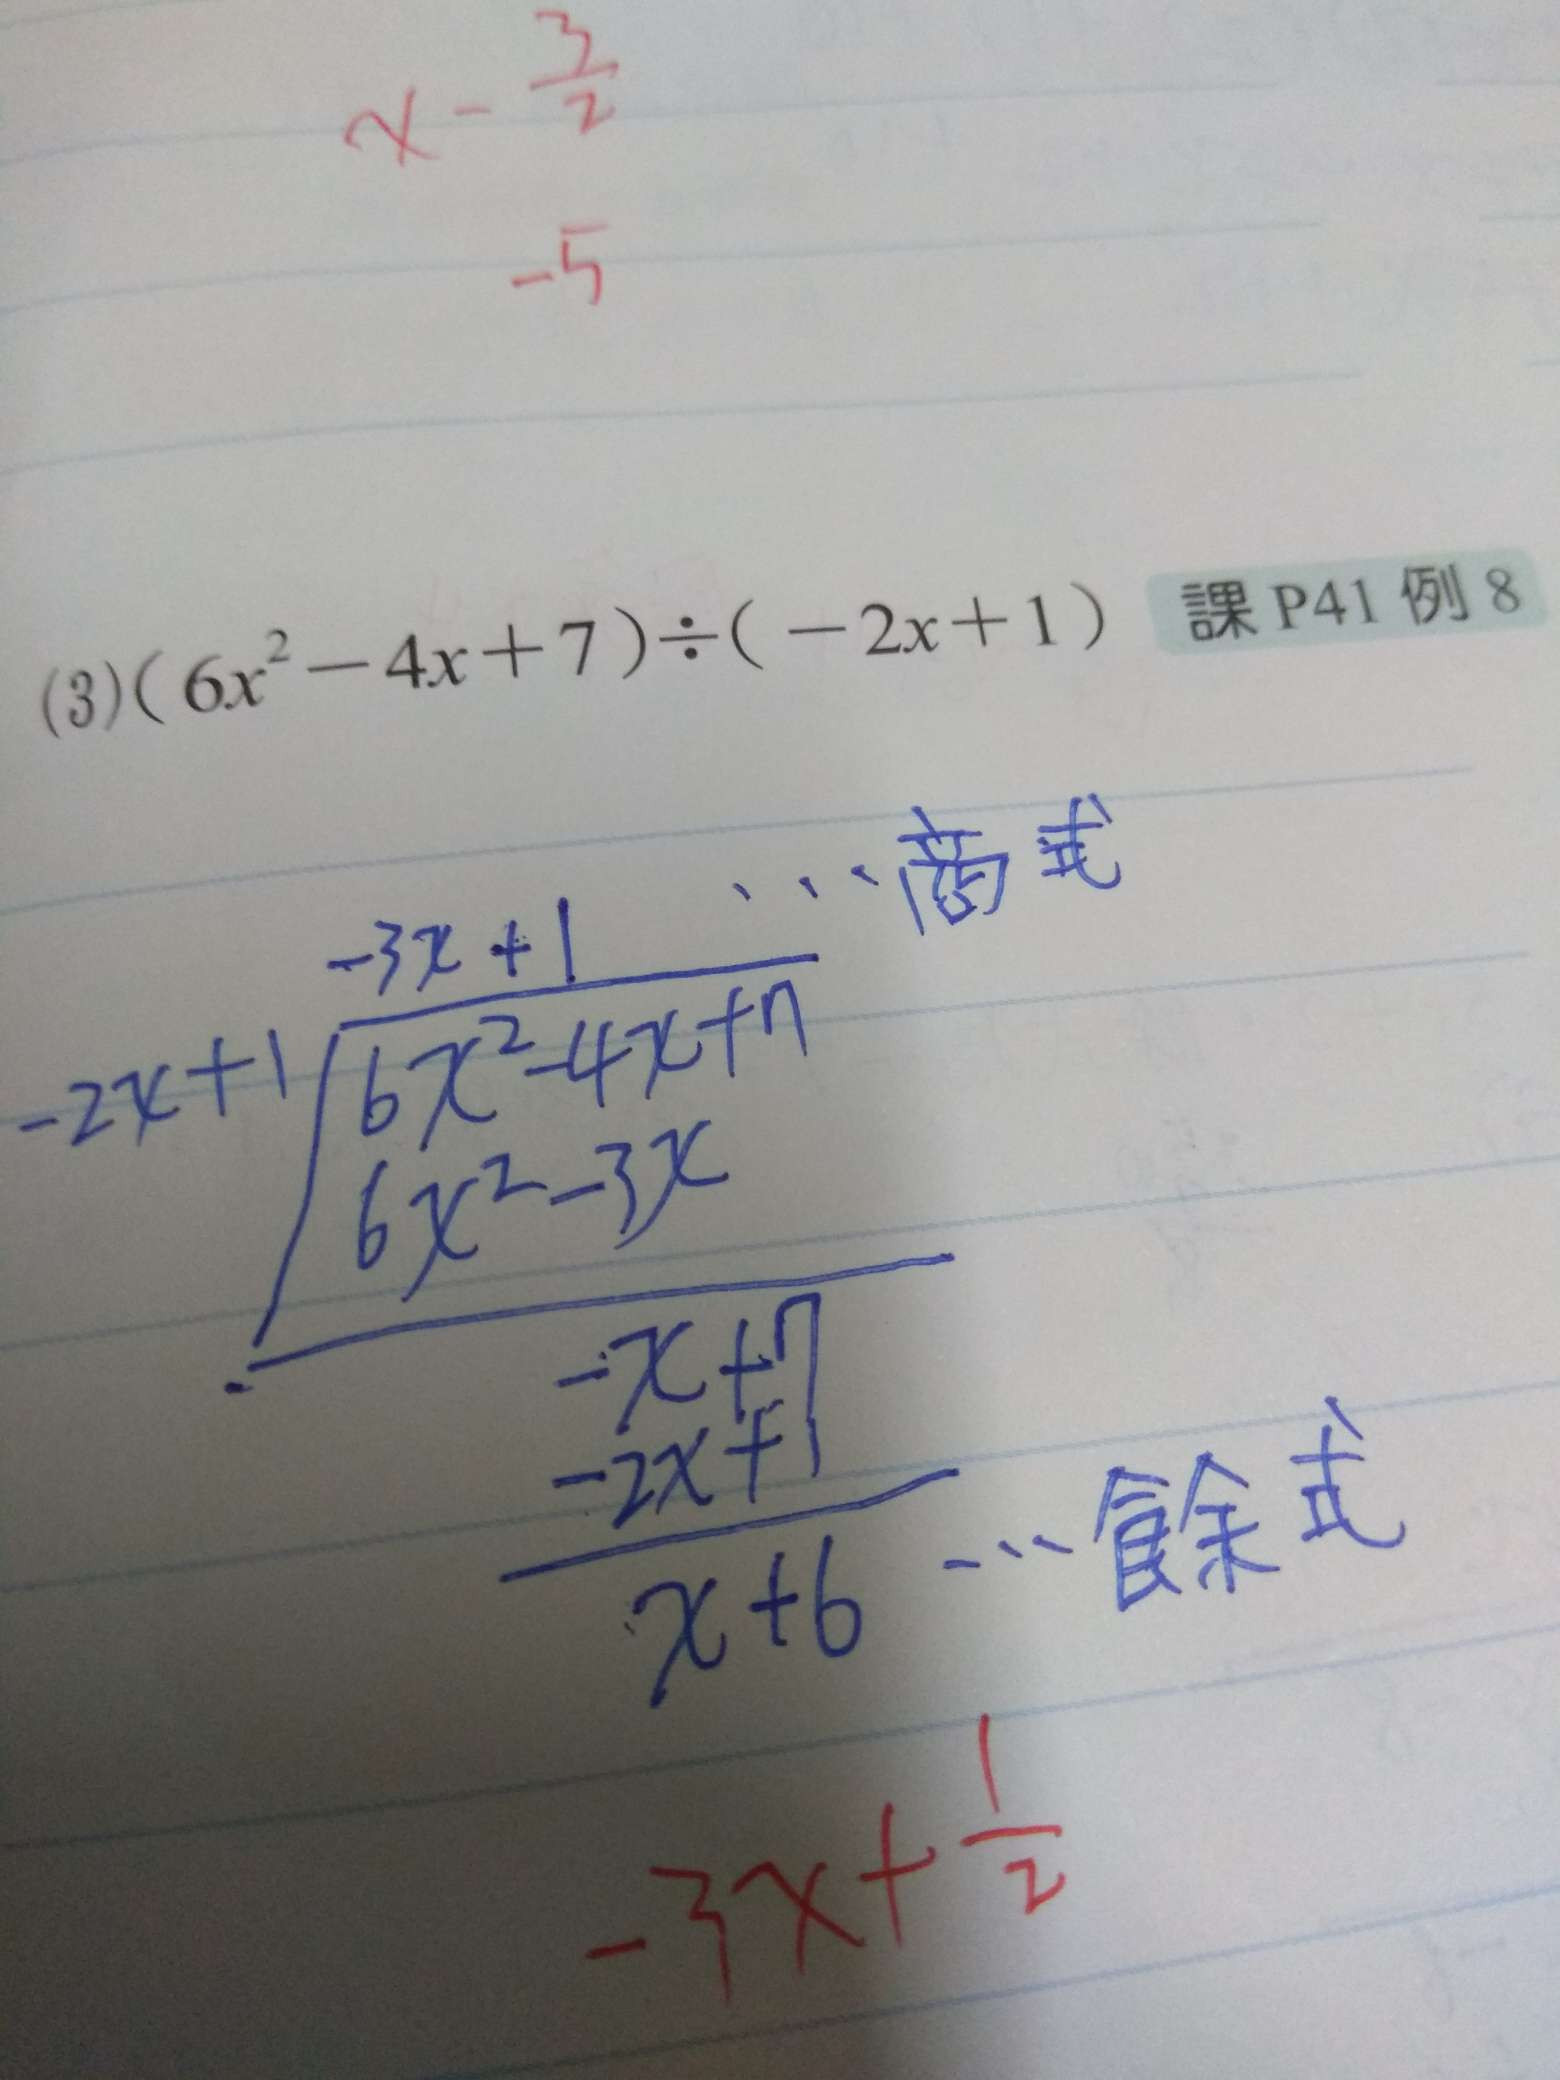 x - 3/2
-5
(3)(6x²－4x＋7)÷(－2x＋1) 課P41例8
-3x+1 …商式
-2x+1 6x²-4x+7
6x²-3x
-x+7
-2x+1
x+6 …餘式
-3x+1/2